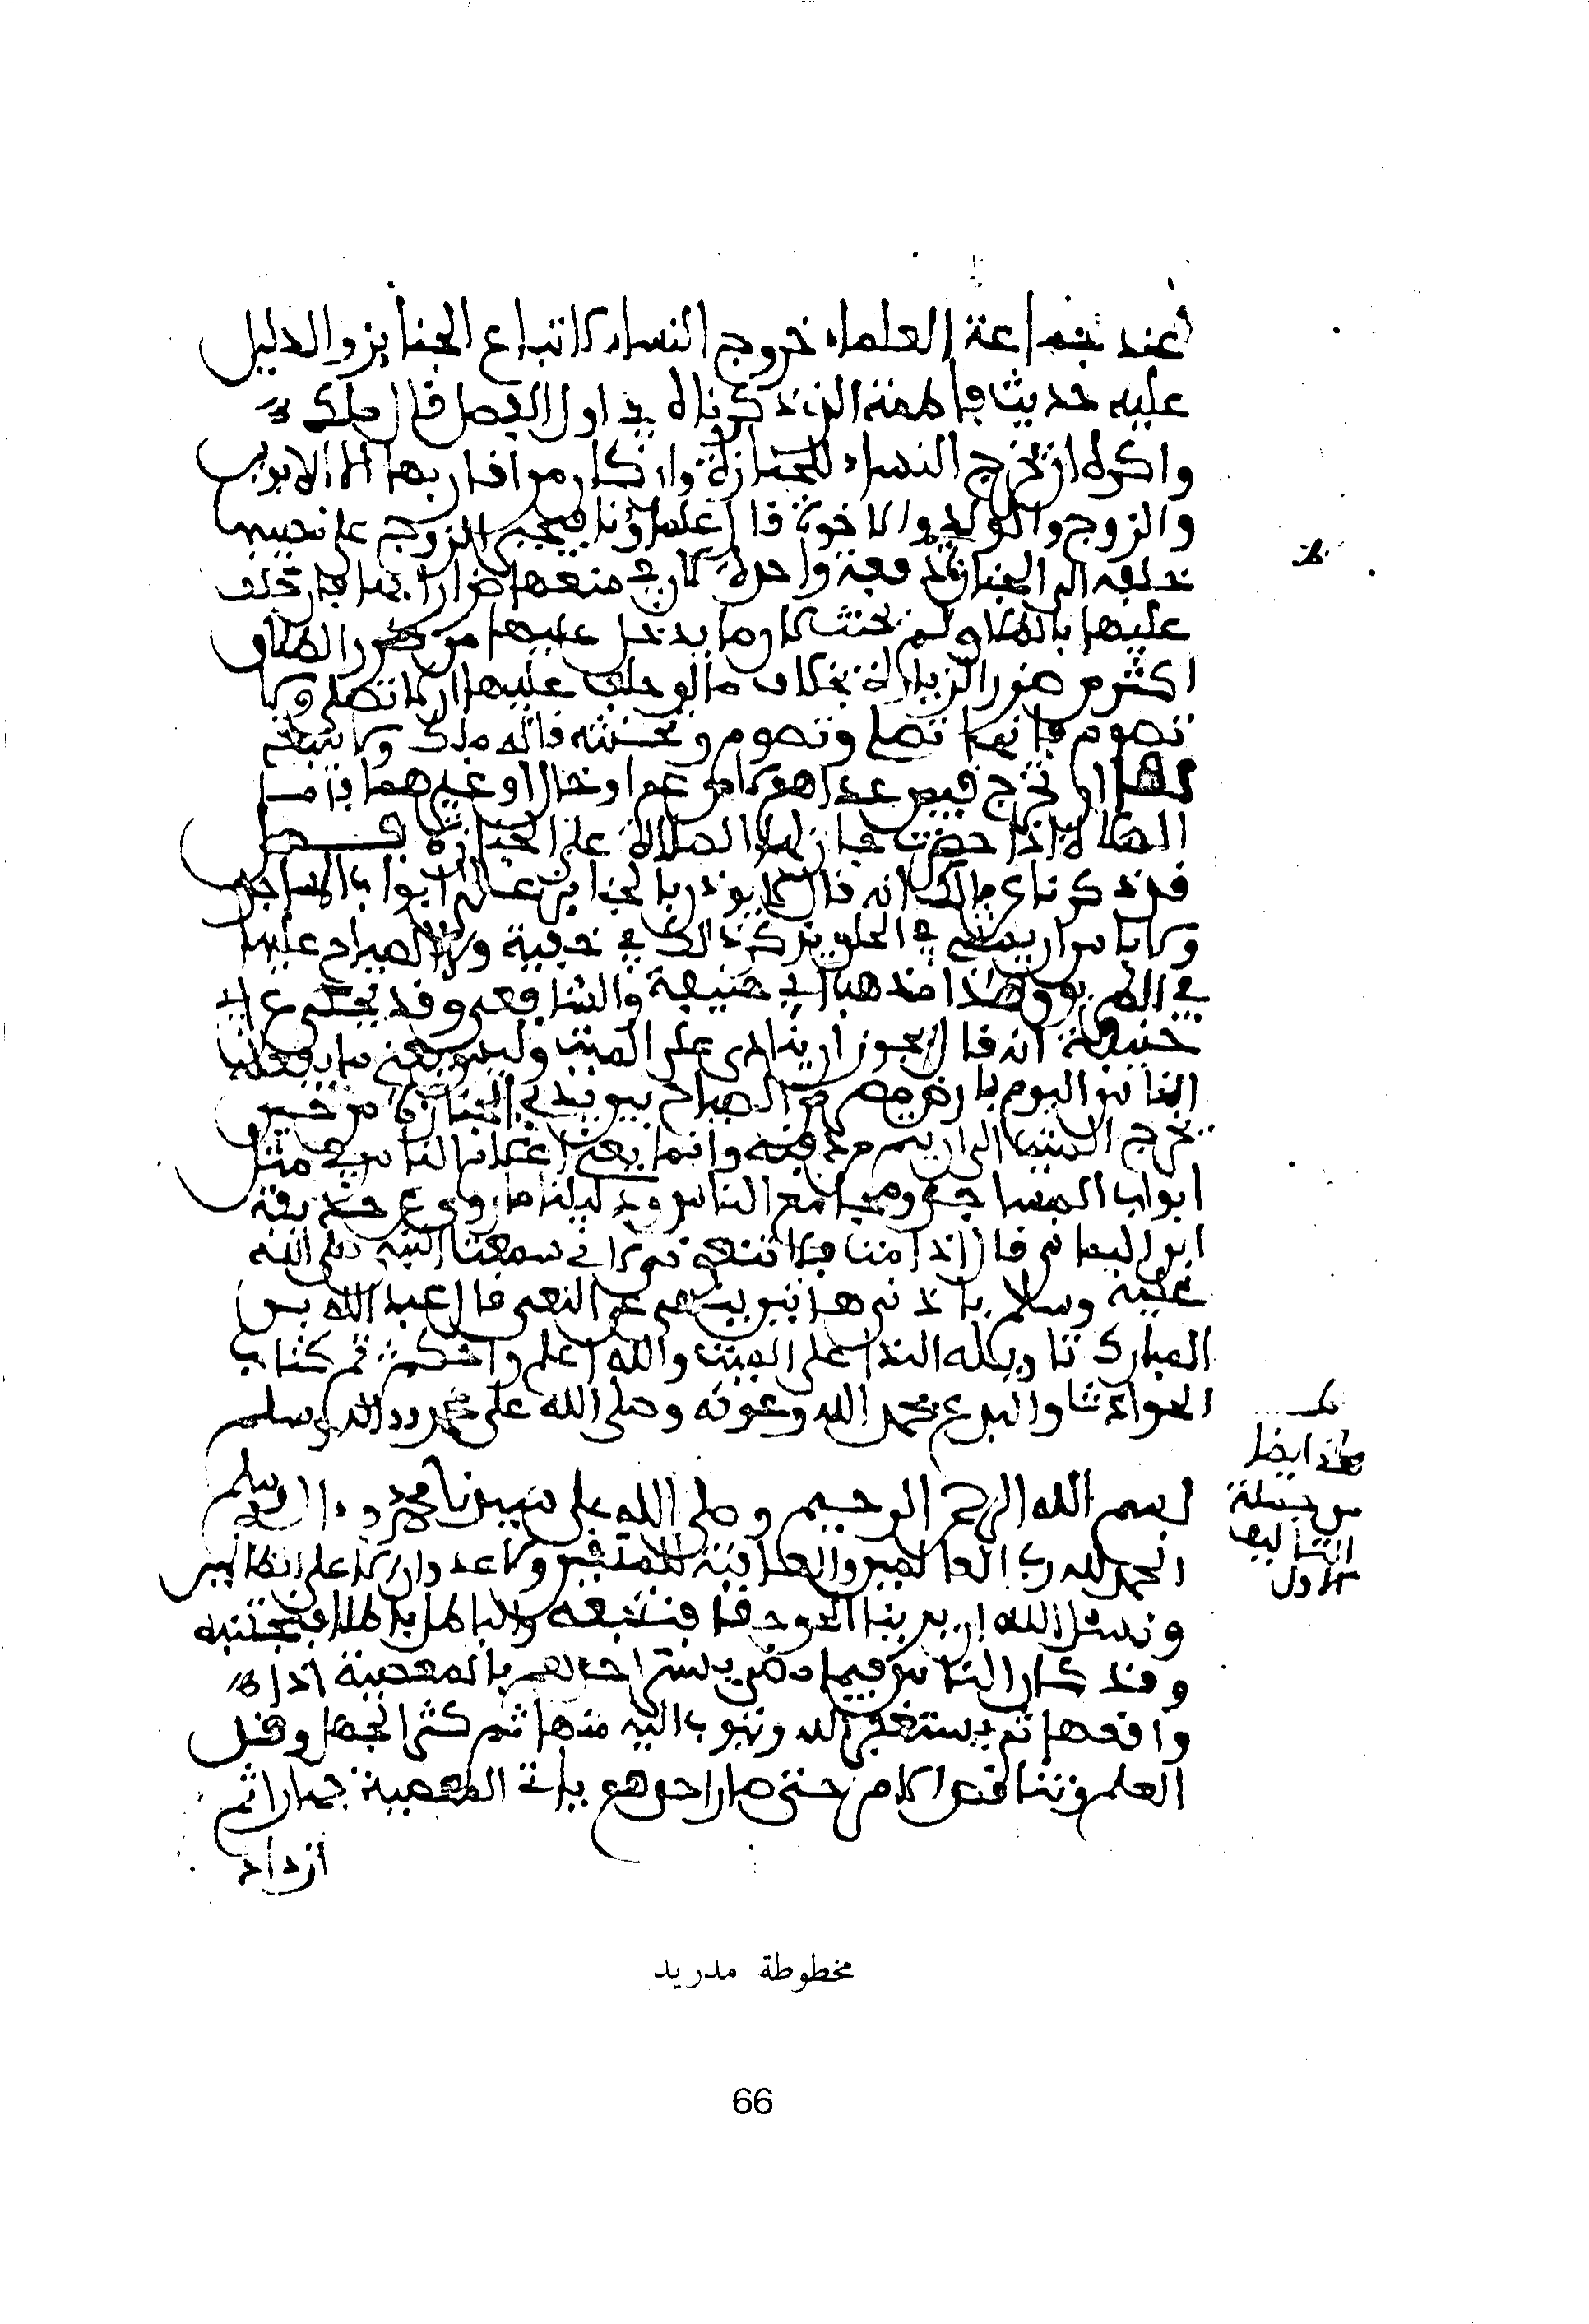 عند جماعة العلماء خروج النساء لاتباع الجنايز والدليل
عليه حديث فاطمة الذي ذكرناه في اول الفصل قال ملك
واكره ان تخرج النساء للجنازة وان كان من اقاربها الا الابوين
والزوج والولد والاخوة قال علماونا فيجب الزوج على
الى الجنازة دفعة واحدة لان في منعها ضرارا بها فان حلف
عليها بالطلاق لم يحنث لان ما يدخل عليها من ضرر الطلاق
اكثر من ضرر الزيارة بخلاف ما لو حلف عليها ان لا تصلي ولا
تصوم فانها تصلي وتصوم ويحنثه قاله ملك ولا ينبغي
لها ان تخرج فيمن عدا هولاء من عم او خال او غيرهما فاما
الصلاة اذا حضرت فجاز لها الصلاة على الجنازة فصل
قد ذكرنا عن مالك انه قال لا يوذن بالجنايز على ابواب المساجد
ولا باس ان يمشي في الحلق يذكر ذالك في خفية ولا الصياح عليها
في الطريق وهذا مذهب ابي حنيفة والشافعي وقد يحكى عن ابي
حنيفة انه قال يجوز ان ينادى على الميت وليس يعني ما يفعله
الناس اليوم بارض مصر من الصياح بين يدي الجنازة من حين
يخرج الميت الى ان يصير مدفنه وانما يعني اعلام الناس في مثل
ابواب المساجد ومجامع الناس ودليلنا ما روي عن حذيفة
ابن اليمان قال اذا مت فلا تنعوني لاني سمعت النبي صلى الله
عليه وسلم باذني هاتين ينهى عن النعي قال عبد الله بن
المبارك تاويله النداء على الميت والله اعلم واحكم تم كتاب
الحوادث والبدع بحمد الله وعونه وصلى الله على محمد واله وسلم
بسم الله الرحمن الرحيم وصلى الله على سيدنا محمد واله وسلم
الحمد لله رب العالمين والعاقبة للمتقين ولا عدوان الا على الظالمين
ونسئل الله ان يرينا الحق حقا فنتبعه والباطل باطلا فنجتنبه
وقد كان الناس فيما مضى يستتر احدهم بالمعصية اذا
واقعها ثم يستغفر الله ويتوب اليه منها ثم كثر الجهل وقل
العلم وتناقص الامر حتى صار احدهم ياتي المعصية جهارا ثم
ازداد
هذا ايضا
من جملة
التاليف
الاول
مخطوطة مدريد
66